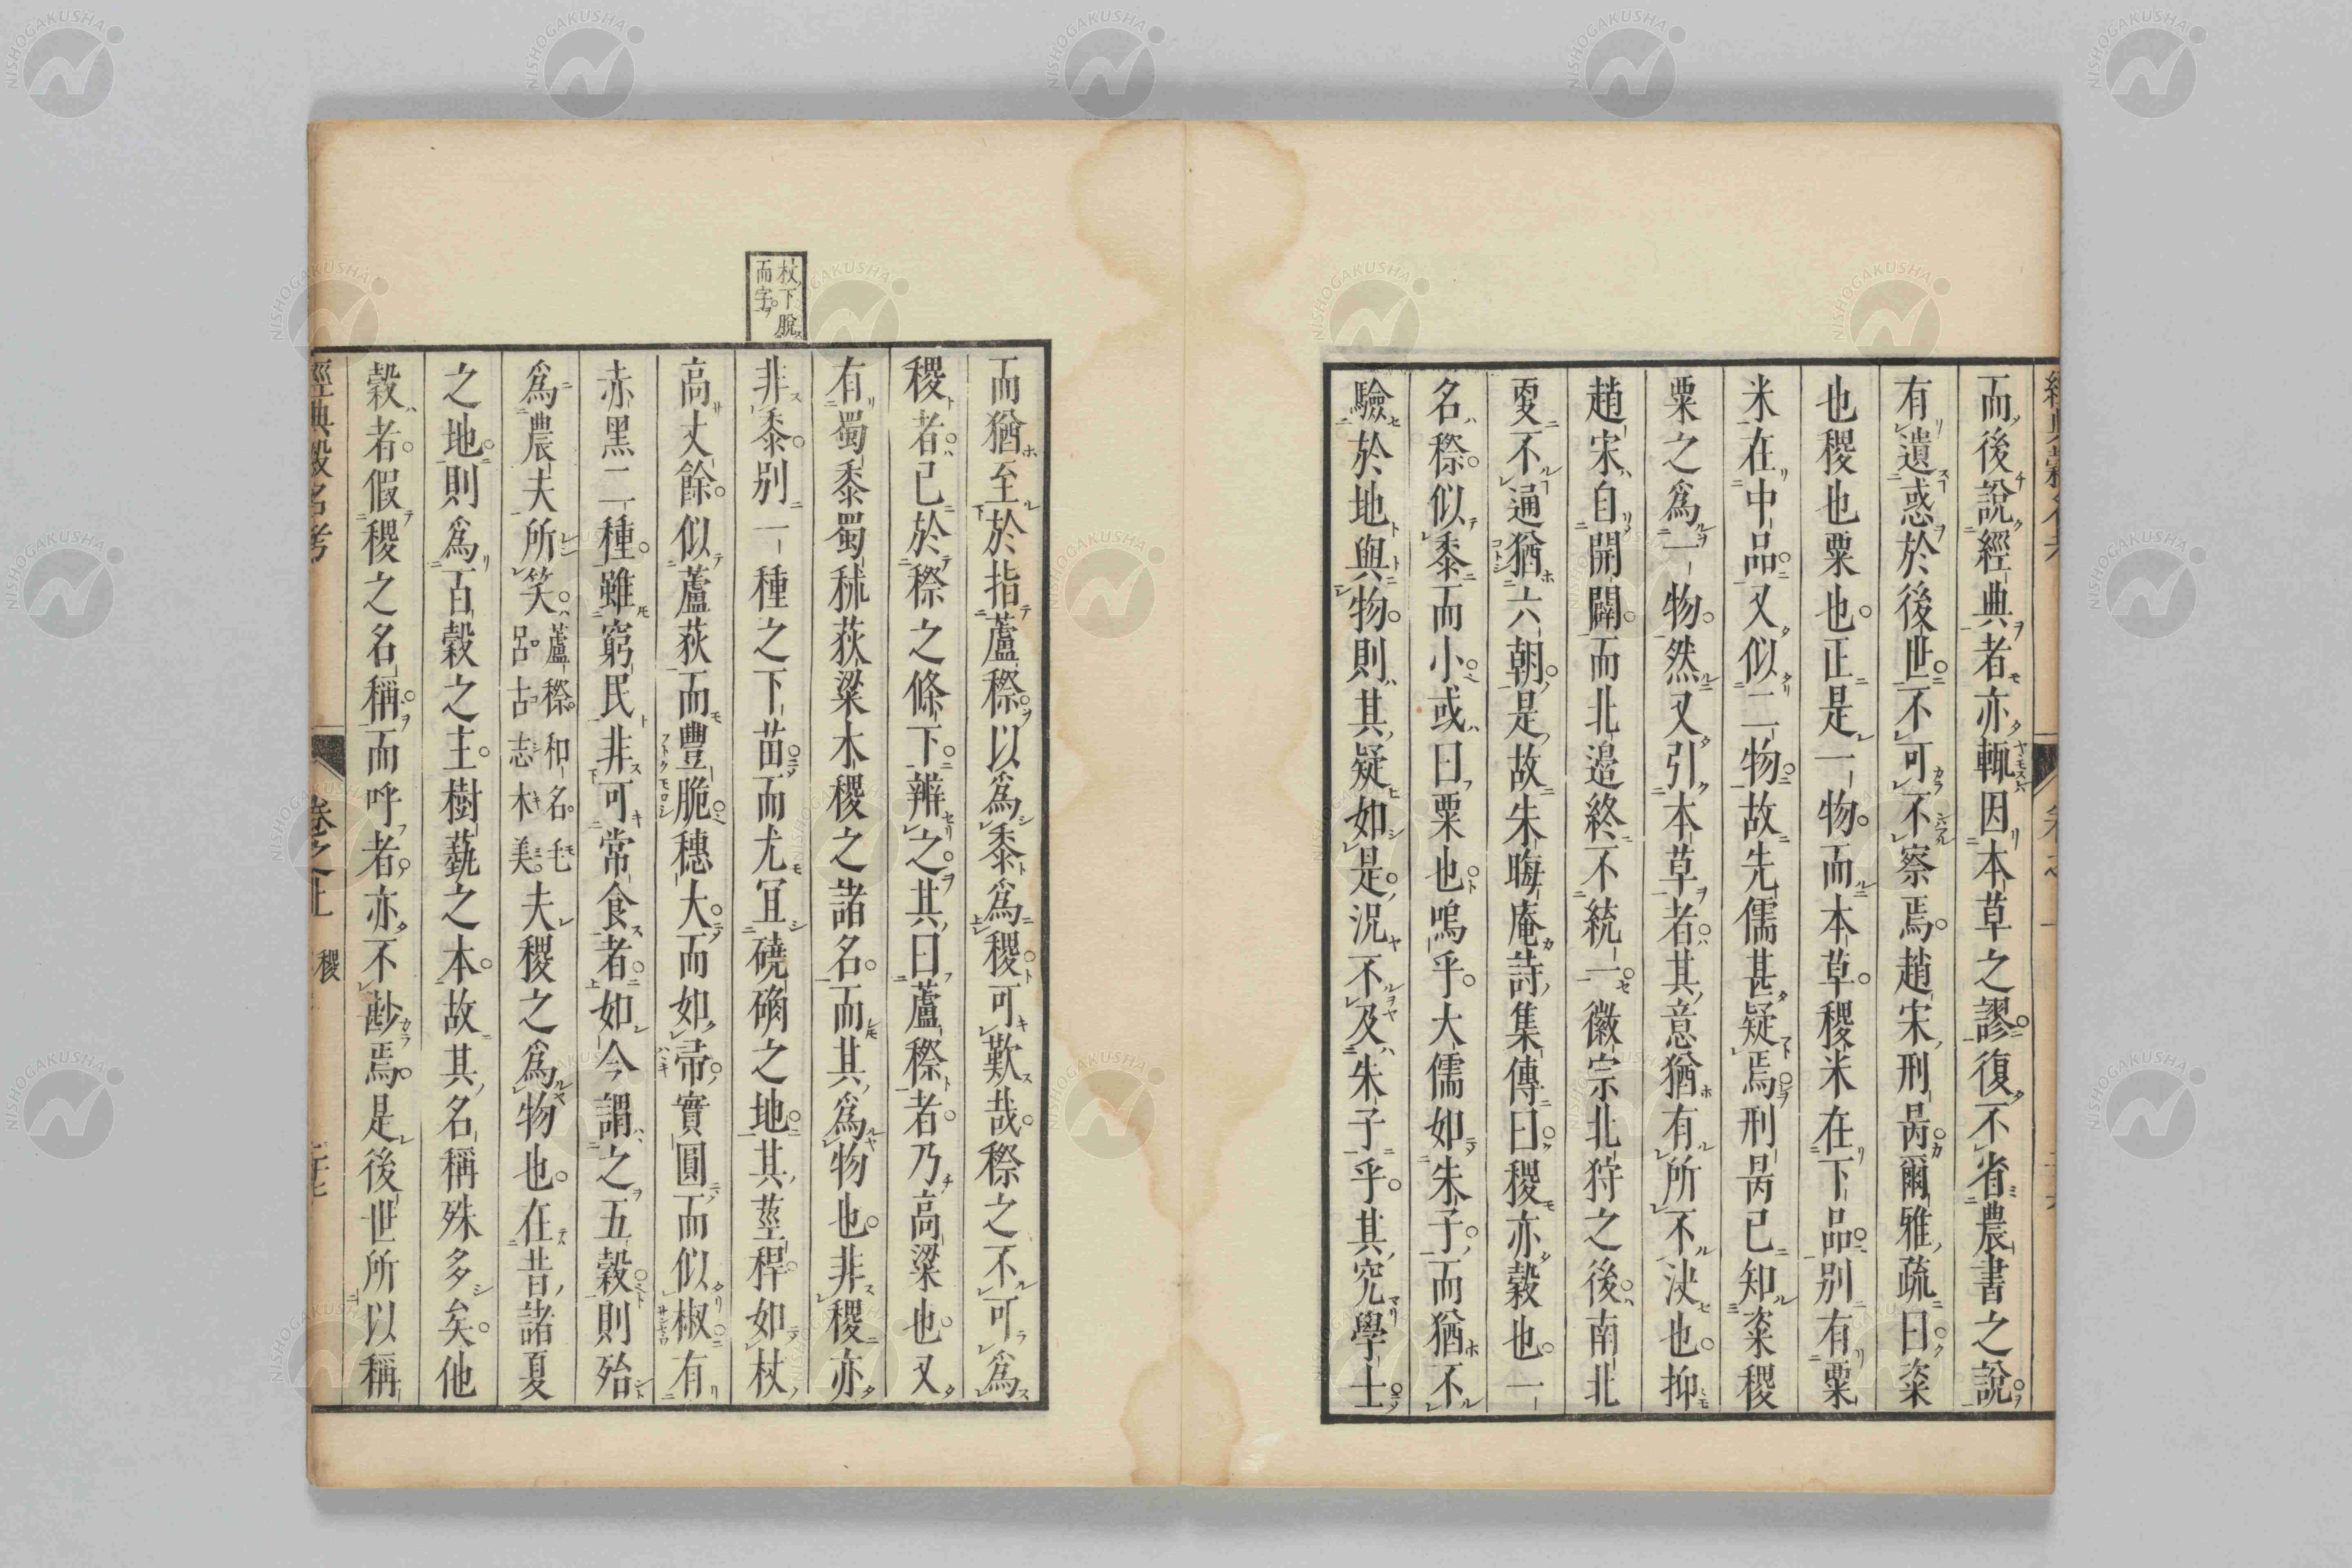 而後說經典者亦輒因本草之謬復不省農書之說
有遺惑於後世不可不察焉趙宋刑昺爾雅疏曰粢
也稷也粟也正是一物而本草稷米在下品別有粟
米在中品又似二物故先儒甚疑焉刑昺已知粢稷
粟之爲一物然又引本草者其意猶有所不決也抑
趙宋自開闢而北邉終不統一徽宗北狩之後南北
敻不通猶六朝是故朱晦庵詩集傳曰稷亦穀也一
名穄似黍而小或曰粟也嗚乎大儒如朱子而猶不
驗於地與物則其疑如是況不及朱子乎其究學士
杖下脫
而字
而猶至於指蘆穄以爲黍爲稷可歎哉穄之不可爲
稷者已於穄之條下辨之其曰蘆穄者乃高粱也又
有蜀黍蜀秫荻粱木稷之諸名而其爲物也非稷亦
非黍別一種之下苗而尤冝磽确之地其莖稈如杖
高丈餘似蘆荻而豐脆穗大而如帚實圓而似椒有
赤黑二種雖窮民非可常食者如今謂之五穀則殆
爲農夫所笑蘆穄和名毛呂古志木美夫稷之爲物也在昔諸夏
之地則爲百穀之主樹蓺之本故其名稱殊多矣他
穀者假稷之名稱而呼者亦不尠焉是後世所以稱
經典穀名考 卷之上 稷